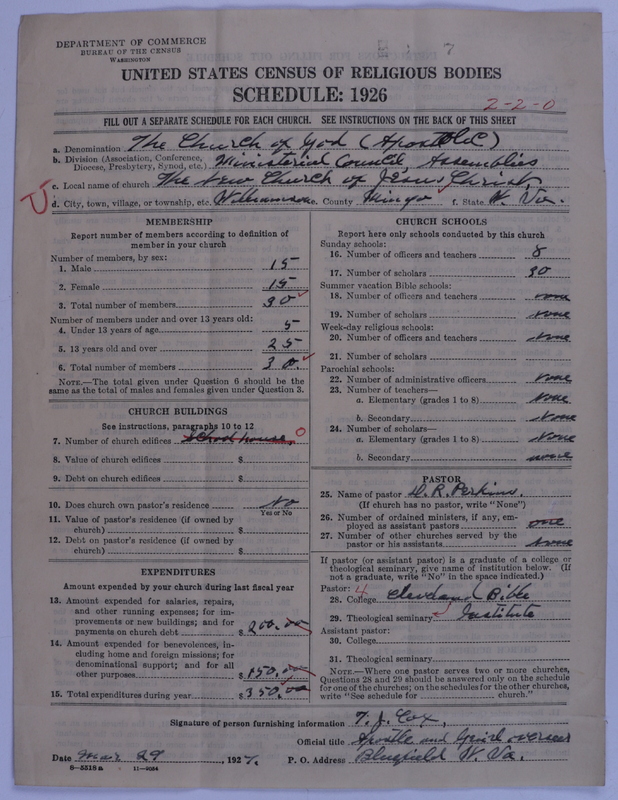 DEPARTMENT OF COMMERCE
BUREAU OF THE CENSUS
WASHINGTON
UNITED STATES CENSUS OF RELIGIOUS BODIES
SCHEDULE: 1926
2-2-0
FILL OUT A SEPARATE SCHEDULE FOR EACH CHURCH. SEE INSTRUCTIONS ON THE BACK OF THIS SHEET
a. Denomination The Church of God (Apostolic)
b. Division (Association, Conference, Diocese, Presbytery, Synod, etc.) Ministerial Council, Assemblies
c. Local name of church The New Church of Jesus Christ,
d. City, town, village, or township, etc. Williamson e. County Mingo f. State W. Va.
MEMBERSHIP
Report number of members according to definition of
member in your church
Number of members, by sex:
1. Male 15
2. Female 15
3. Total number of members 30
Number of members under and over 13 years old:
4. Under 13 years of age 5
5. 13 years old and over 25
6. Total number of members 30.
NOTE.—The total given under Question 6 should be the
same as the total of males and females given under Question 3.
CHURCH BUILDINGS
See instructions, paragraphs 10 to 12
7. Number of church edifices School house, 0
8. Value of church edifices $
9. Debt on church edifices $
10. Does church own pastor's residence No
Yes or No
11. Value of pastor's residence (if owned by
church) $
12. Debt on pastor's residence (if owned by
church) $
EXPENDITURES
Amount expended by your church during last fiscal year
13. Amount expended for salaries, repairs,
and other running expenses; for im-
provements or new buildings; and for
payments on church debt $ 200.00
14. Amount expended for benevolences, in-
cluding home and foreign missions; for
denominational support; and for all
other purposes $ 150.00
15. Total expenditures during year $ 350.00
CHURCH SCHOOLS
Report here only schools conducted by this church
Sunday schools:
16. Number of officers and teachers 8
17. Number of scholars 30
Summer vacation Bible schools:
18. Number of officers and teachers none
19. Number of scholars none
Week-day religious schools:
20. Number of officers and teachers none
21. Number of scholars
Parochial schools:
22. Number of administrative officers none
23. Number of teachers—
a. Elementary (grades 1 to 8) none
b. Secondary none
24. Number of scholars—
a. Elementary (grades 1 to 8) none
b. Secondary none
PASTOR
25. Name of pastor H. R. Perkins.
(If church has no pastor, write "None")
26. Number of ordained ministers, if any, em-
ployed as assistant pastors one
27. Number of other churches served by the
pastor or his assistants none
If pastor (or assistant pastor) is a graduate of a college or
theological seminary, give name of institution below. (If
not a graduate, write "No" in the space indicated.)
Pastor: 4
28. College Cleveland Bible
29. Theological seminary Institute
Assistant pastor:
30. College
31. Theological seminary
NOTE.—Where one pastor serves two or more churches,
Questions 28 and 29 should be answered only on the schedule
for one of the churches; on the schedules for the other churches,
write "See schedule for church."
Signature of person furnishing information T. J. Cox,
Official title Apostle and Genrl overseer
Date Mar 29, 1927. P. O. Address Bluefield W. Va.
8—5518a 11—9034